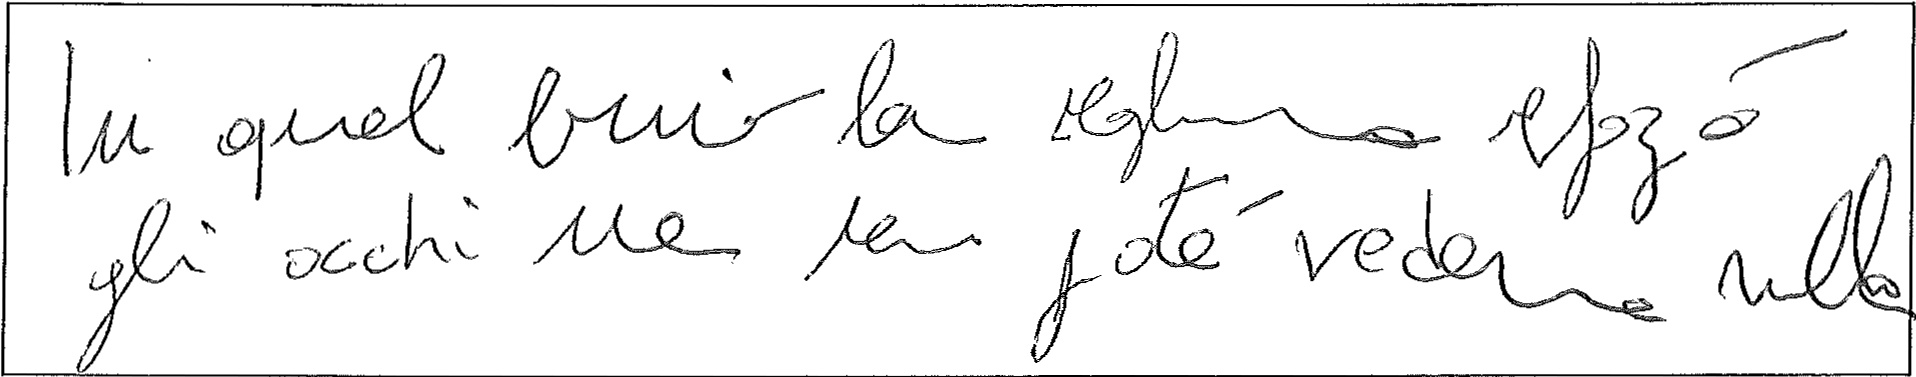 In quel buio la sforzò
gli occhi ma non poté vedere nulla